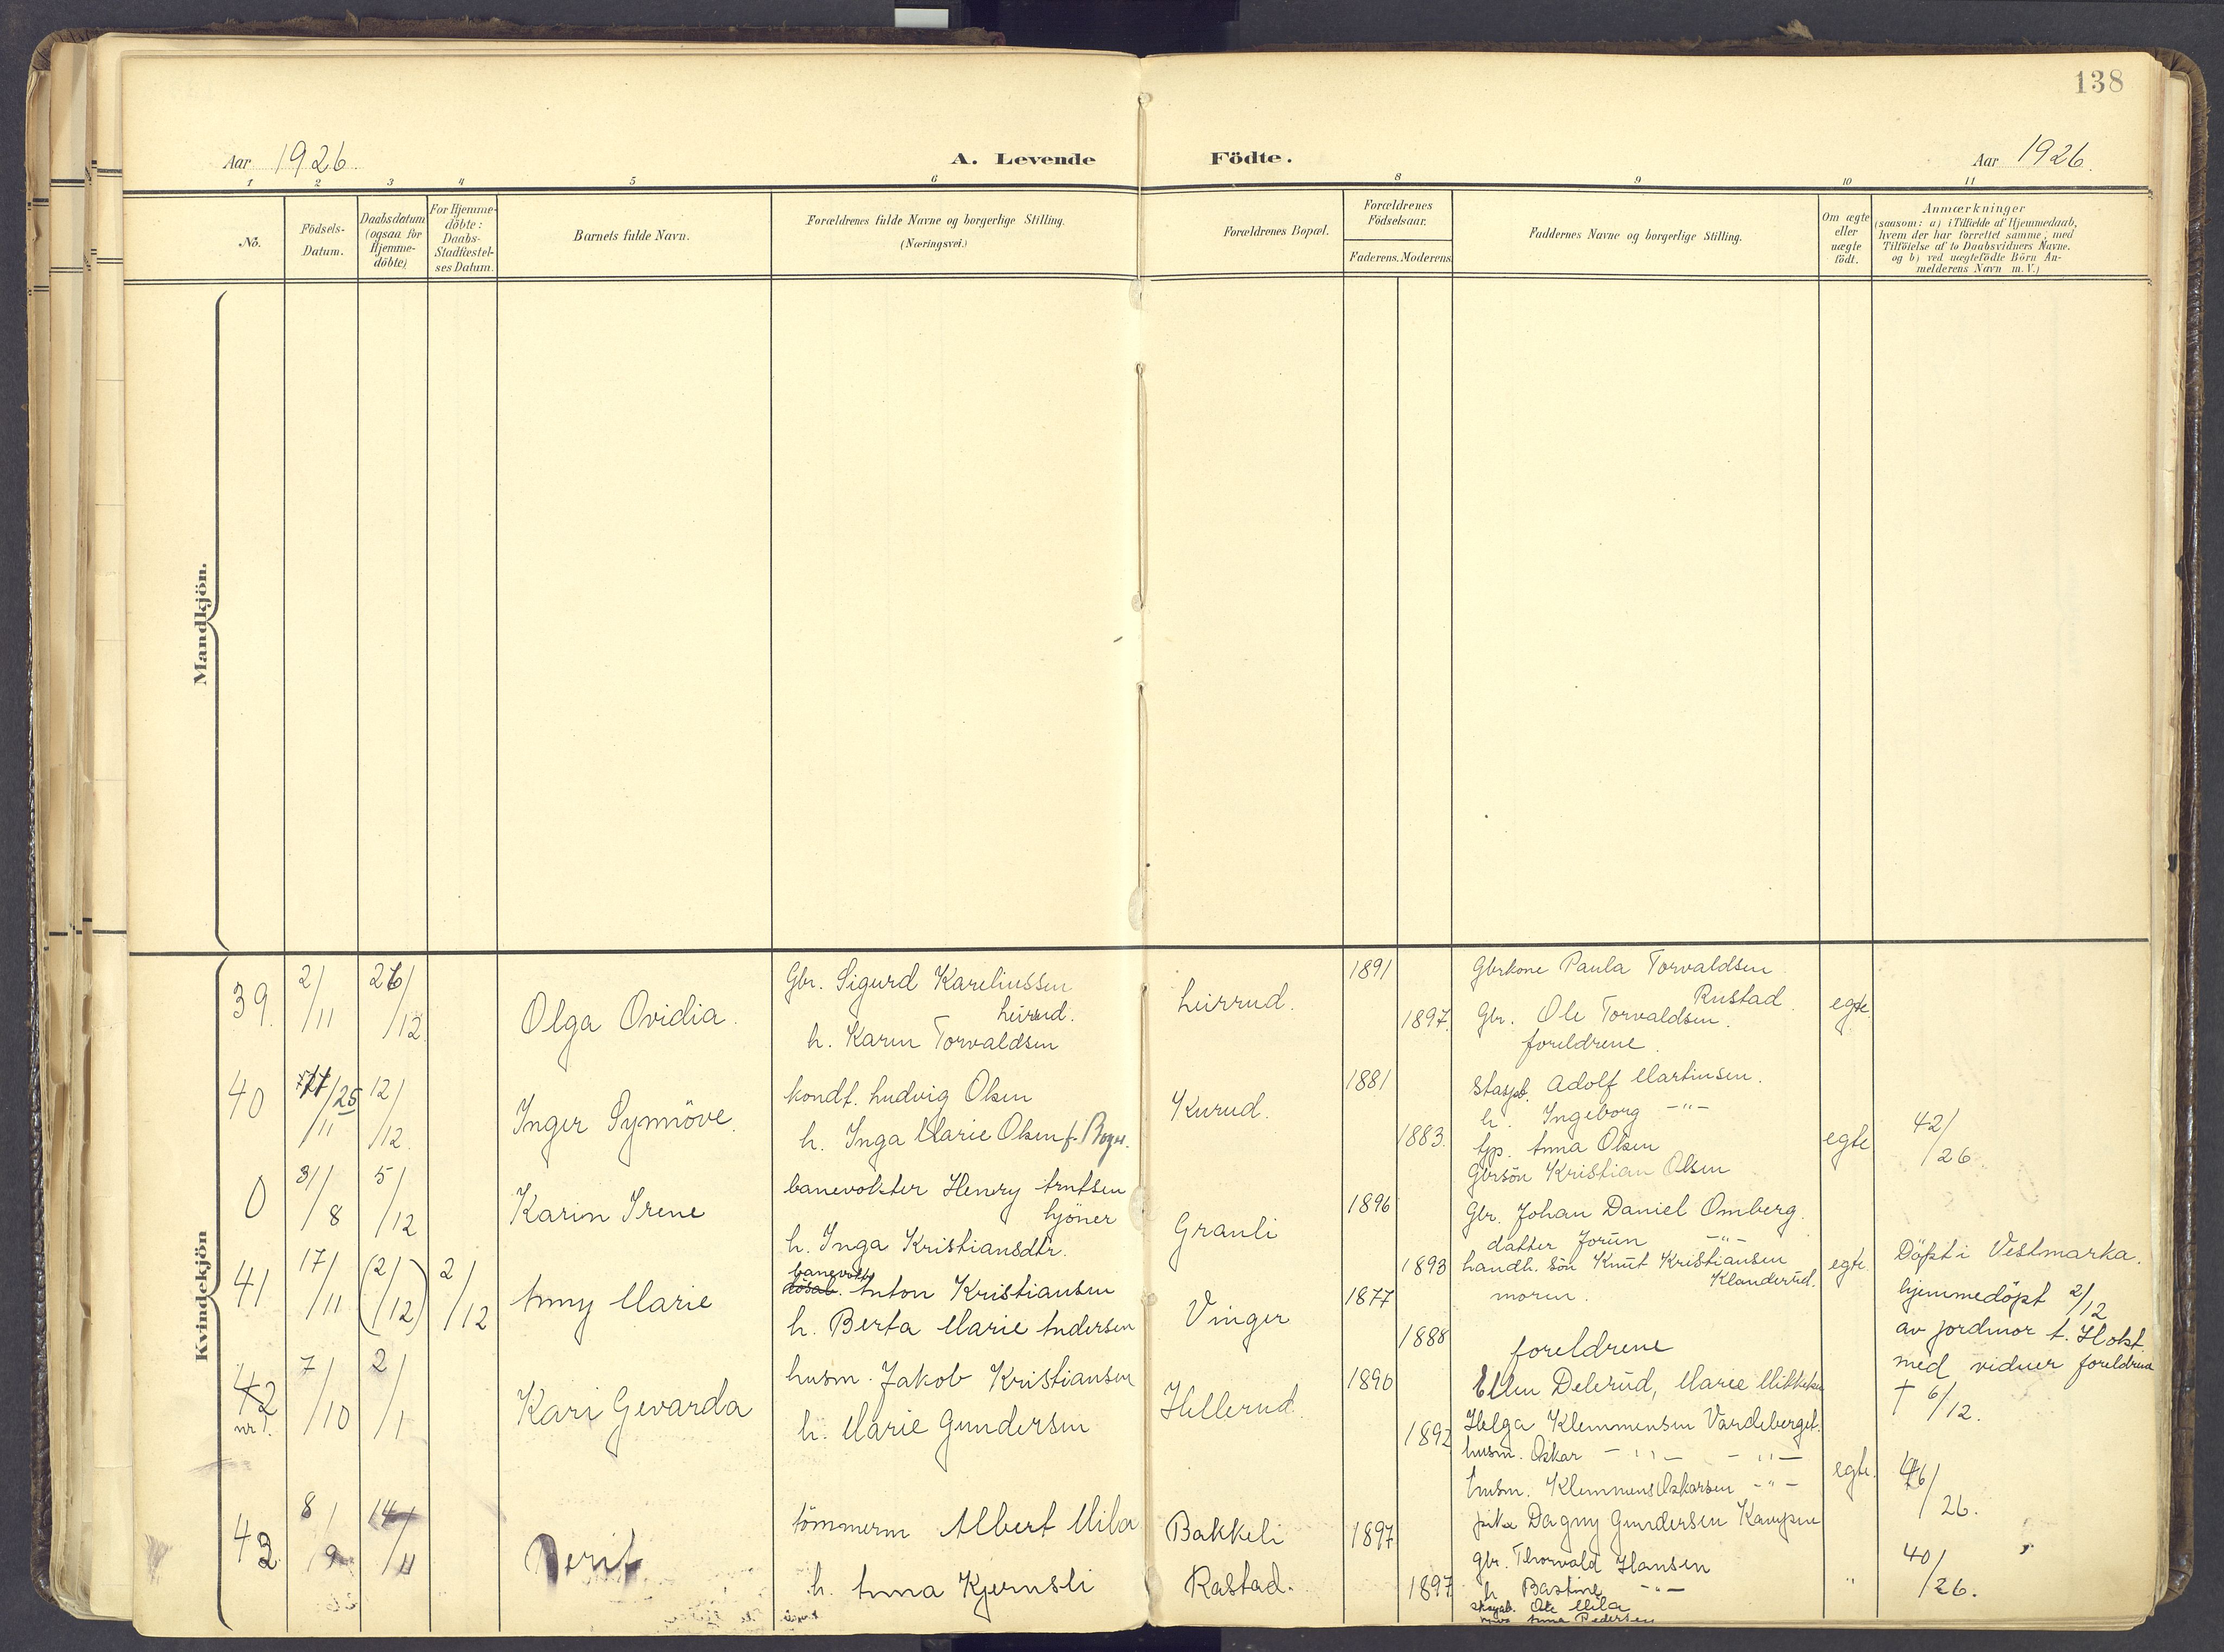 138
Aar 1926. A. Levende Födte. Aar 1926.
1 2 3 4 5 6 8 9 10 11
No.
Födsels-
Datum.
Daabsdatum
(ogsaa for
Hjemme-
döbte)
For Hjemme-
döbte:
Daabs-
Stadfæstel-
ses Datum.
Barnets fulde Navn.
Forældrenes fulde Navne og borgerlige Stilling.
(Næringsvei.)
Forældrenes Bopæl.
Forældrenes
Födselsaar.
Faderens. Moderens
Faddernes Navne og borgerlige Stilling.
Om ægte
eller
uægte
födt.
Anmærkninger
(saasom: a) i Tilfælde af Hjemmedaab,
hvem der har forrettet samme, med
Tilföielse af to Daabsvidners Navne.
og b) ved uægtefödte Börn An-
melderens Navn m. V.)
Mandkjön.
Kvindekjön
39. 2/11 26/12. Olga Ovidia.
Gbr. Sigurd Kareliussen
Leirud.
h. Karen Torvaldsen
Leirrud.
1891
1897.
Gbrkone Paula Torvaldsen
Rustad.
Gbr. Ole Torvaldsen.
foreldrene.
egte.
40 /11 25 12/12. Inger Synnöve.
kondt. Ludvig Olsen
h. Inga Marie Olsen f.
Kurud.
1881
1883.
Adolf Martinsen.
h. Ingeborg -"-
tjp. Anna Olsen
Gbrsön Kristian Olsen
egte
42/26
0 31/8 5/12 Karin Irene
banevokter Henry Arntsen
h. Inga Kristiansdtr.
Granli
1896
1893
Gbr. Johan Daniel Omberg.
datter Jorun -"-
handh. sön Knut Kristiansen
Klanderud.
moren.
egte.
Döpt i Vestmarka.
41 17/11 (2/12) 2/12 Anny Marie
banevokt.
Anton Kristiansen
h. Berta Marie Andersen
Vinger
1877
1888
foreldrene
hjemmedöpt 2/12
av jordmor A. Holst
med vidner foreldrene
† 6/12.
42
nr 1. 7/10 2/1 Kari Gevarda
husm. Jakob Kristiansen
h. Marie Gundersen
Hellerud
1890
1892
Ellen Delerud, Marie Mikkelsen
Helga Klemmensen Vardeberget.
husm. Oskar -"- -"-
husm. Klemmens Oskarsen -"-
pike Dagny Gundersen
egte.
46/26.
43. 8/9 14/11 Berit
tömmerm Albert Mila
h. Anna Kjernsli
Bakkeli
Rastad.
1897
1897
Gbr. Thorvald Hansen
h. Bastine -"-
skogab. Ole Mila
Anna Pedersen
"
40/26.